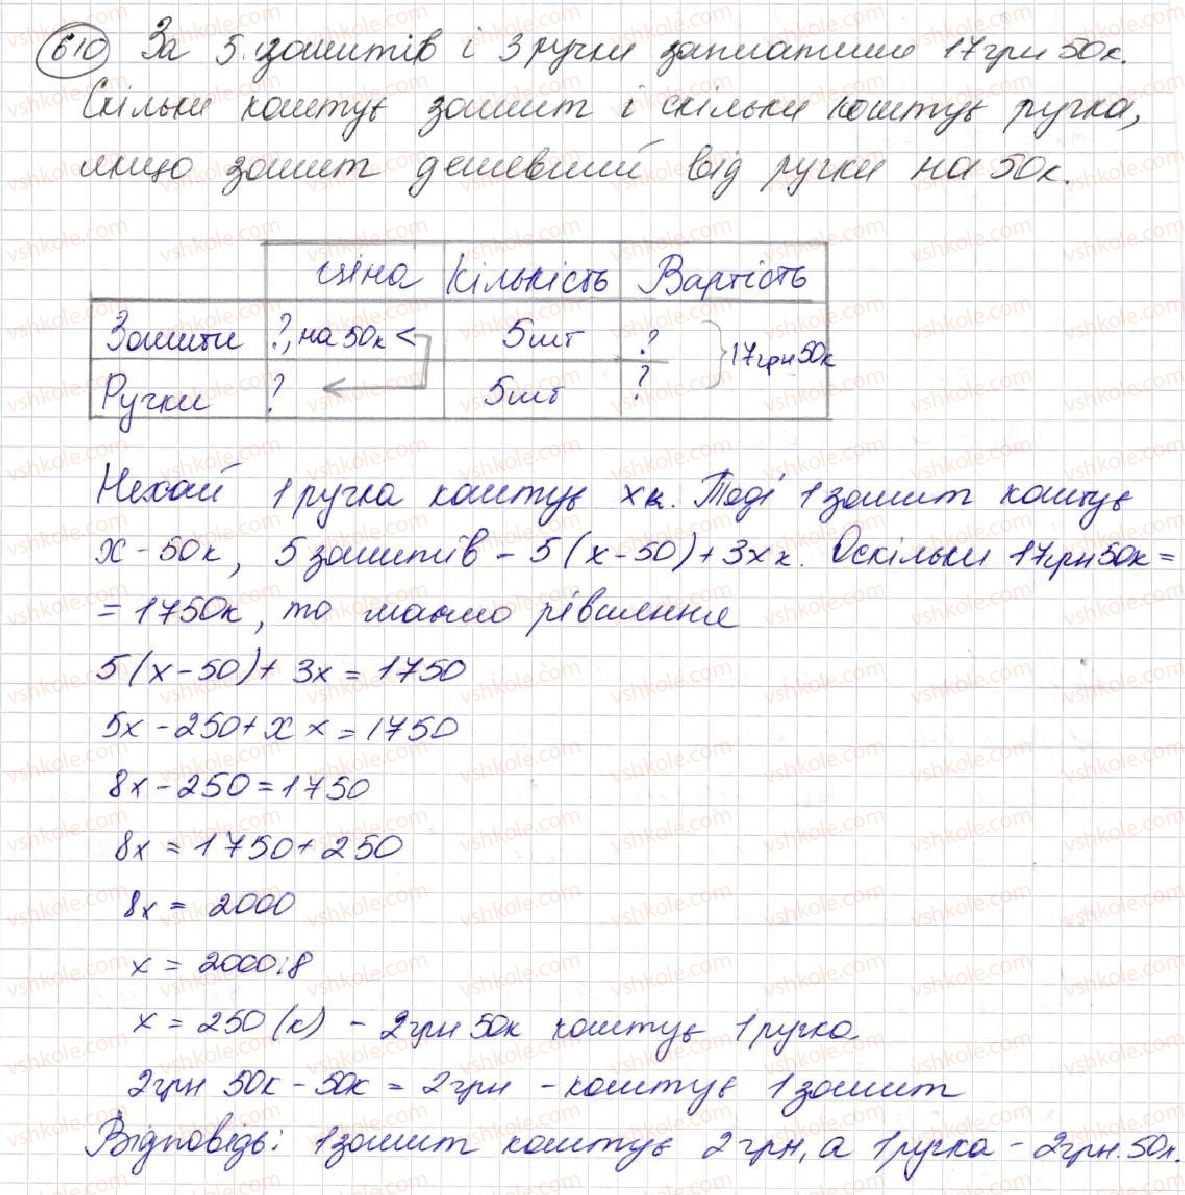 610 За 5 зошитів і 3 ручки заплатили 17 грн 50 к.
Скільки коштує зошит і скільки коштує ручка,
якщо зошит дешевший від ручки на 50 к.
Ціна Кількість Вартість
Зошити ?, на 50 к < 5 шт ? } 17 грн 50 к
Ручки ? 5 шт ?
Нехай 1 ручка коштує х к. Тоді 1 зошит коштує
х - 50 к, 5 зошитів - 5(х-50)+3х к. Оскільки 17 грн 50 к =
= 1750 к, то маємо рівняння
5(х-50)+ 3х = 1750
5х - 250 + х х = 1750
8х - 250 = 1750
8х = 1750 + 250
8х = 2000
х = 2000:8
х = 250 (к) - 2 грн 50 к коштує 1 ручка
2 грн 50 к - 50 к = 2 грн - коштує 1 зошит
Відповідь: 1 зошит коштує 2 грн, а 1 ручка - 2 грн. 50 к.
vshkole.com